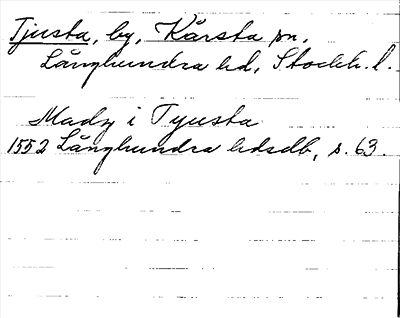 Tjusta, by, Kårsta sn,
Långhundra hd, Stockh. l.
Madz i Tyusta
1552 Långhundra hdsdb, s. 63.